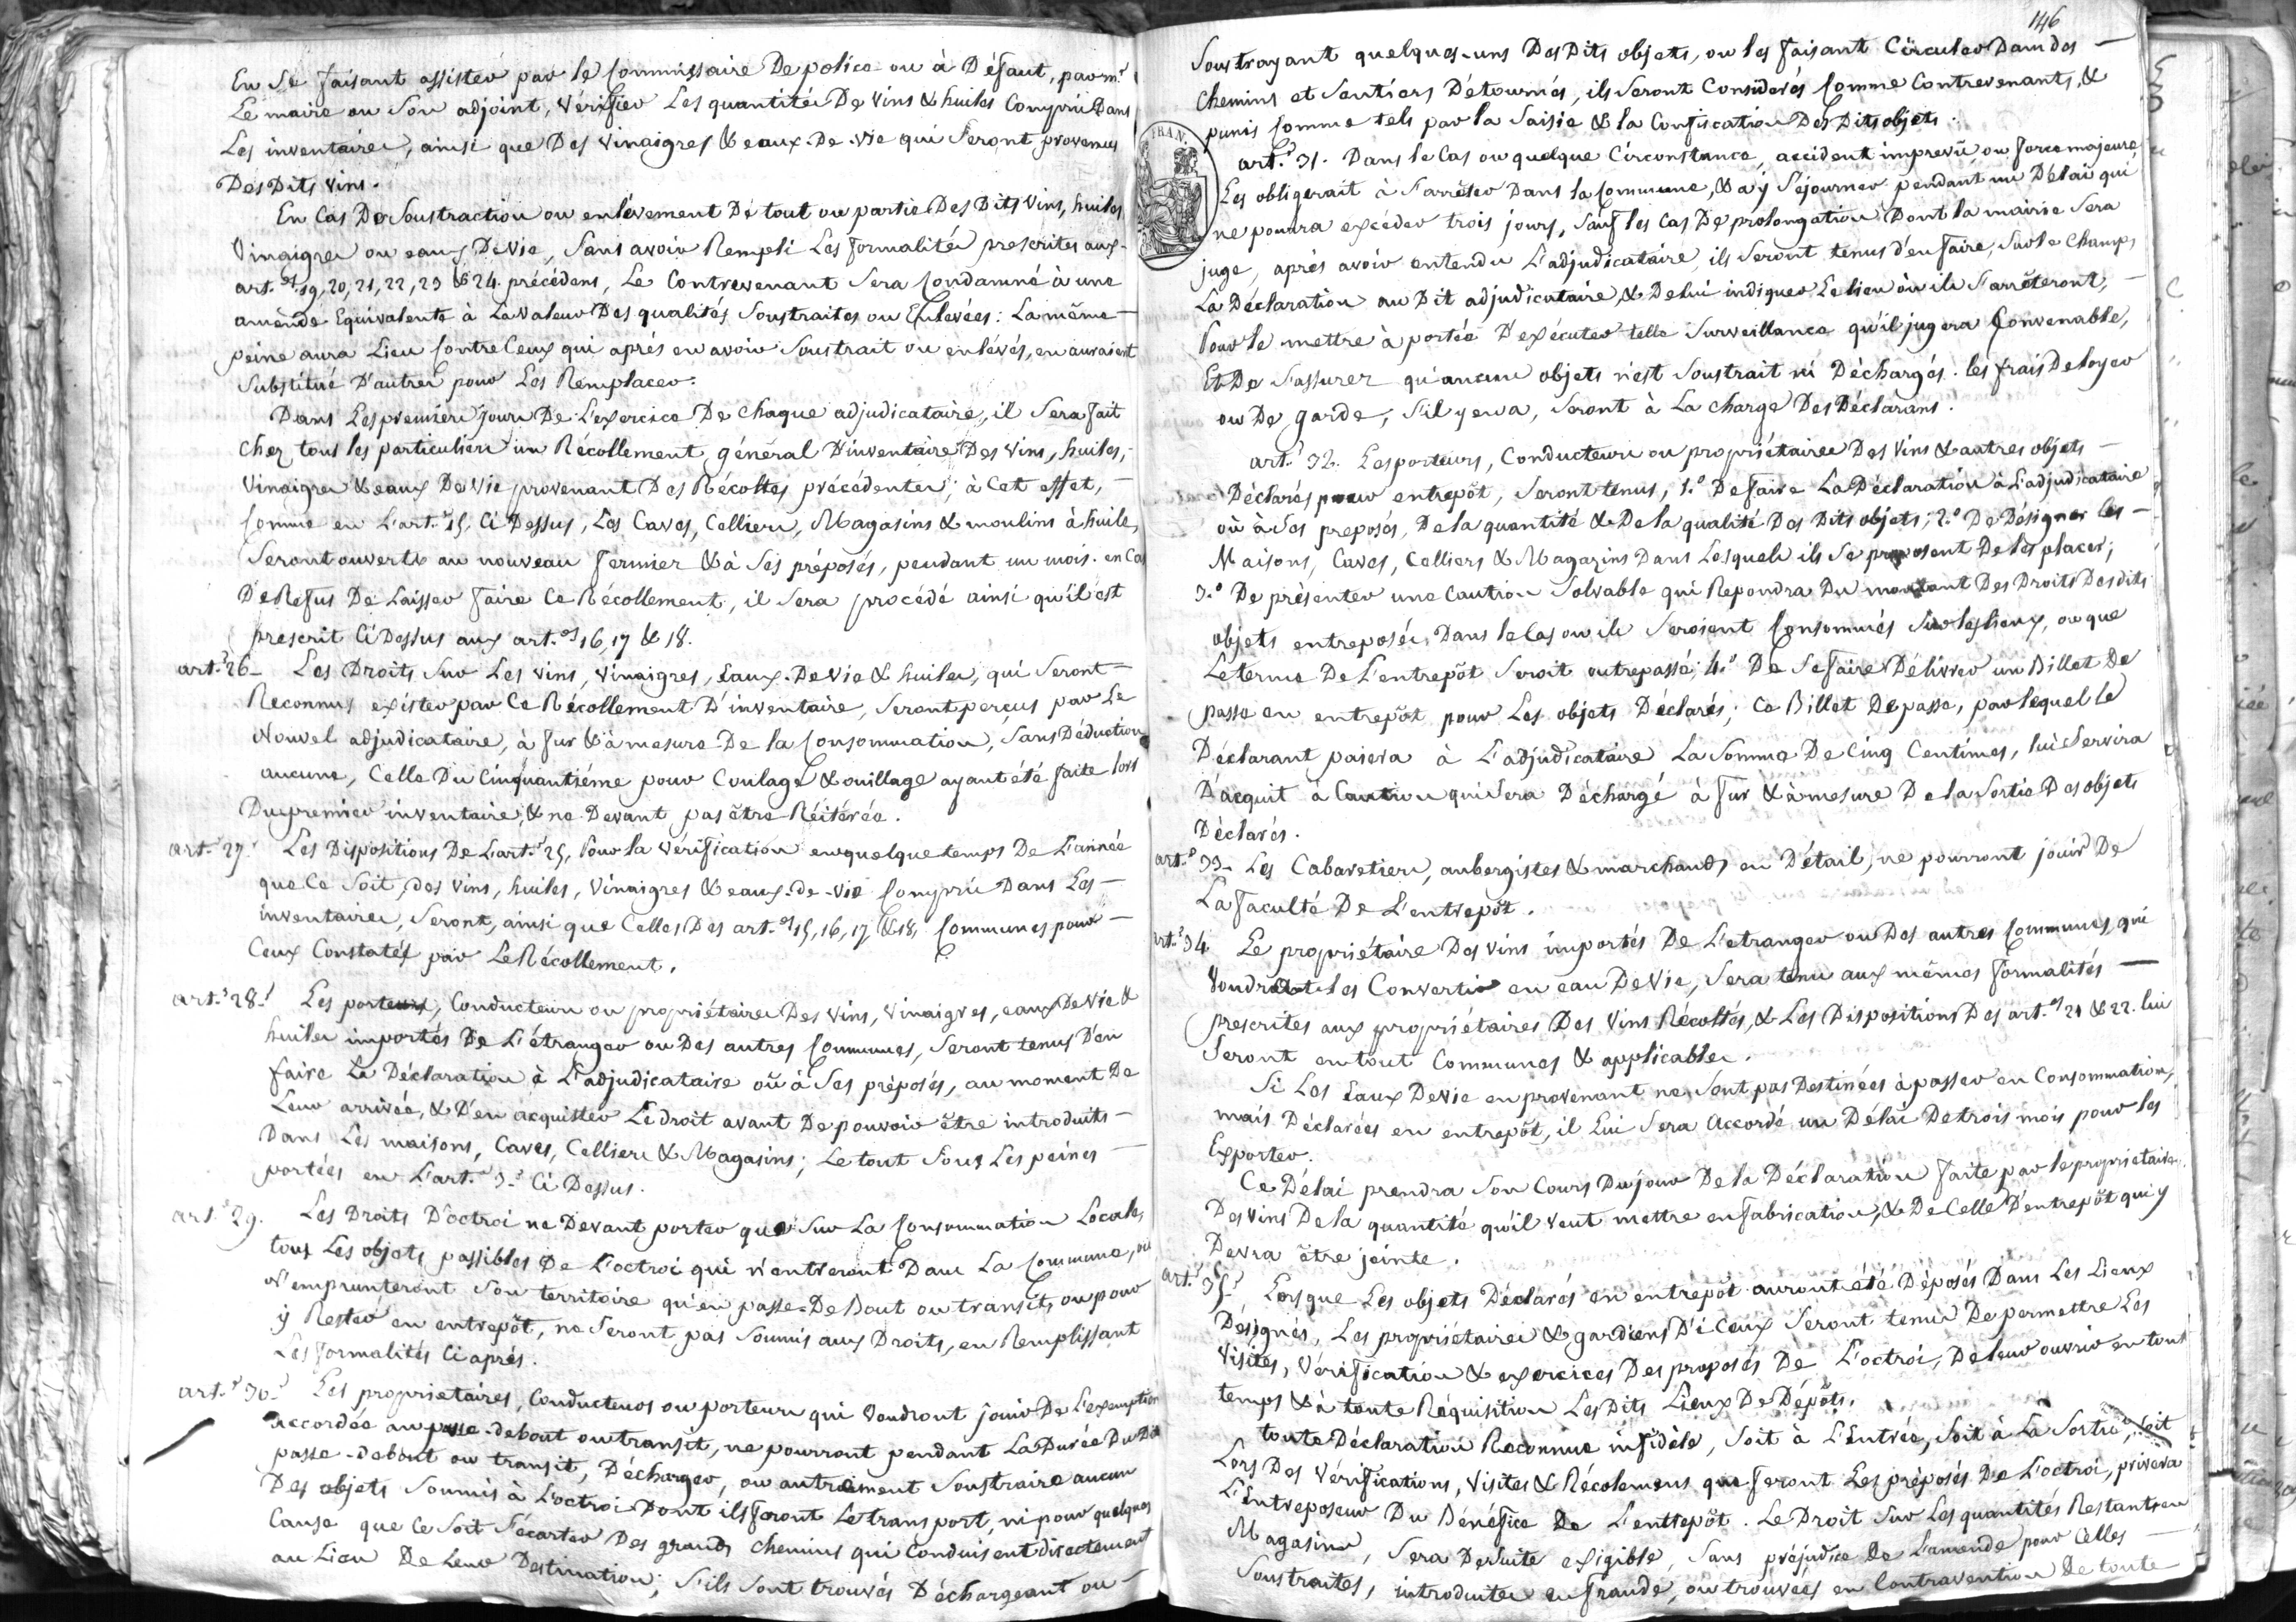 En Se faisant assister par le Commissaire De police ou à Défaut, par m.r
Le maire ou Son adjoint, vérifier Les quantités De vins & huiles Compris Dans
Les inventaires, ainsi que Des vinaigres & eaux-De-vie qui Seront provenus
Des Dits vins.
En Cas De Soustraction ou enlèvement De tout ou partie Des Dits vins, huiles
Vinaigres ou eaux De vie, Sans avoir Rempli Les formalités prescrites aux
art.es 19, 20, 21, 22, 23 & 24. précédens, Le Contrevenant Sera Condamné à une
amende Equivalente à La valeur Des qualités Soustraites ou Enlevées: La même
peine aura Lieu Contre Ceux qui après en avoir Soustrait ou enlevés, en auraient
Substitué D'autres pour Les Remplacer.
Dans Les premiers jours De L'exercice De chaque adjudicataire, il Sera fait
chez tous les particuliers un Récollement général D'inventaire Des vins, huiles,
Vinaigres & eaux De vie provenant Des Récoltes précédentes; à Cet effet,
Comme en L'art. 15, Ci Dessus, Les Caves, Celliers, Magasins & moulins à huile,
Seront ouverts au nouveau fermier & à Ses préposés, pendant un mois. en Cas
De Refus De Laisser faire Ce Récollement, il Sera procédé ainsi qu'il est
prescrit Ci Dessus aux art.es 16, 17 & 18.
art. 26 Les Droits Sur Les vins, vinaigres, Eaux-De vie & huiles, qui Seront
Reconnus exister par Ce Récollement D'inventaire, Seront perçus par Le
Nouvel adjudicataire, à fur & à mesure De la Consommation, Sans Déduction
aucune, Celle Du Cinquantième pour Coulage & ouillage ayant été faite lors
Du premier inventaire, & ne Devant pas être Réitérée.
art. 27. Les Dispositions De L'art. 25, Pour la vérification en quelque temps De L'année
que Ce Soit, des vins, huiles, vinaigres & eaux-de-vie Compris Dans Les
inventaires, Seront, ainsi que Celles Des art.es 15, 16, 17 & 18, Communes pour
Ceux Constatés par Le Récollement.
art. 28. Les porteurs, Conducteurs ou propriétaires Des vins, vinaigres, eaux De vie &
huiles importés De L'étranger ou Des autres Communes, Seront tenus D'en
faire La Déclaration à L'adjudicataire où à Ses préposés, au moment De
Leur arrivée, & D'en acquitter Le droit avant De pouvoir être introduits
Dans Les maisons, Caves, Celliers & Magasins; Le tout Sous Les peines
portées en L'art. 3. Ci Dessus.
art. 29. Les Droits D'octroi ne Devant porter que Sur La Consommation Locale,
tous Les objets passibles De L'octroi qui n'entreront Dans La Commune, ou
N'emprunteront Son territoire qu'en passe-De Bout ou transit, ou pour
y Rester en entrepôt, ne Seront pas Soumis aux Droits, en Remplissant
Les formalités Ci après.
art. 30. Les propriétaires, Conducteurs ou porteurs qui voudront jouir De L'exemption
accordée au passe-debout ou transit, ne pourront pendant La Durée Du Dit
passe-debout ou transit, Décharger, ou autrement Soustraire aucun
Des objets Soumis à L'octroi Dont ils feront Le transport, ni pour quelques
Cause que Ce Soit S'écarter Des grands chemins qui Conduisent directement
au Lieu De Leur Destination; S'ils Sont trouvés Déchargeant ou
146
Soustrayant quelques-uns Des Dits objets, ou les faisant Circuler Dans des
Chemins et Sentiers Détournés, ils Seront Considerés Comme Contrevenants, &
punis Comme tels par la Saisie & la Confiscation Des Dits objets.
FRAN.
art. 31. Dans le Cas ou quelque Circonstance, accident imprevû, ou force majeure,
Les obligerait à S'arrêter Dans la Commune, & a y Séjourner pendant un Délai qui
ne pourra excéder trois jours, Sauf les Cas De prolongation Dont la mairie Sera
juge, après avoir entendu L'adjudicataire, ils Seront tenus d'en faire, Sur le champ,
La Déclaration au Dit adjudicataire & De lui indiquer Le lieu où ils S'arrêteront,
Pour le mettre à portée D'exécuter telle Surveillance qu'il jugera Convenable,
Et De S'assurer qu'aucun objets n'est Soustrait ni Déchargés. les frais De loyer
ou De garde, S'il y en a, Seront à La charge Des Déclarans.
art. 32. Les porteurs, Conducteurs ou propriétaires Des vins & autres objets
Déclarés pour entrepôt, Seront tenus, 1.º De faire La Déclaration à L'adjudicataire
où à Ses preposés, De la quantité & De la qualité Des Dits objets; 2.º De Désigner les
Maisons, Caves, Celliers & Magazins Dans Lesquels ils Se proposent De les placer;
3.º De présenter une Caution Solvable qui Repondra Du montant Des Droits Desdits
objets entreposés, Dans le Cas ou ils Seroient Consommés Sur les lieux, ou que
Le terme De L'entrepôt Seroit outrepassé; 4.º De Se faire Délivrer un Billet De
passe en entrepôt pour Les objets Déclarés; Ce Billet De passe, pour lequel le
Déclarant paiera à L'adjudicataire La Somme De Cinq Centimes, lui Servira
D'acquit à Caution qui Sera Déchargé à fur & à mesure De la Sortie Des objets
Déclarés.
art. 33. Les Cabaretiers, aubergistes & marchands en Détail, ne pourront jouir De
La faculté De L'entrepôt.
art. 34 Le propriétaire Des vins importés De L'etranger ou Des autres Communes qui
Voudra les Convertir en eau De vie, Sera tenu aux mêmes formalités
prescrites aux propriétaires Des vins Récoltés, & Les Dispositions Des art.es 21 & 22. lui
Seront en tout Communes & applicables.
Si Les Eaux De vie en provenant ne Sont pas Destinées à passer en Consommation,
mais Déclarées en entrepôt, il Lui Sera Accordé un Délai De trois mois pour les
Exporter.
Ce Délai prendra Son Cours Du jour De la Déclaration faite par le propriétaire
Des vins De la quantité qu'il veut mettre en fabrication, & De Celle D'entrepôt qui y
Devra être jointe.
art. 35. Lorsque Les objets Déclarés en entrepôt auront été Déposés Dans Les Lieux
Désignés, Les propriétaires & gardiens D'iceux Seront tenus De permettre Les
Visites, Vérification & exercices Des preposés De L'octroi, De leur ouvrir en tout
temps & à toute Réquisition Les Dits Lieux De Dépôts.
toute Déclaration Reconnue infidèle, Soit à L'Entrée, Soit à La Sortie, soit
Lors Des vérifications, visites & Récolemens que feront Les préposés De L'octroi, privera
L'Entreposeur Du Bénéfice De L'entrepôt. Le Droit Sur Les quantités Restant en
Magasins, Sera De suite exigible, Sans préjudice De L'amende pour Celles
Soustraites, introduites en fraude, ou trouvées en Contravention De toute